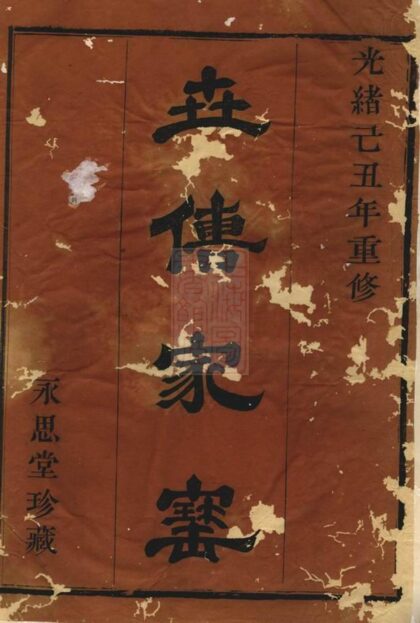 光緒己丑年重修
世傳家寶
永思堂珍藏